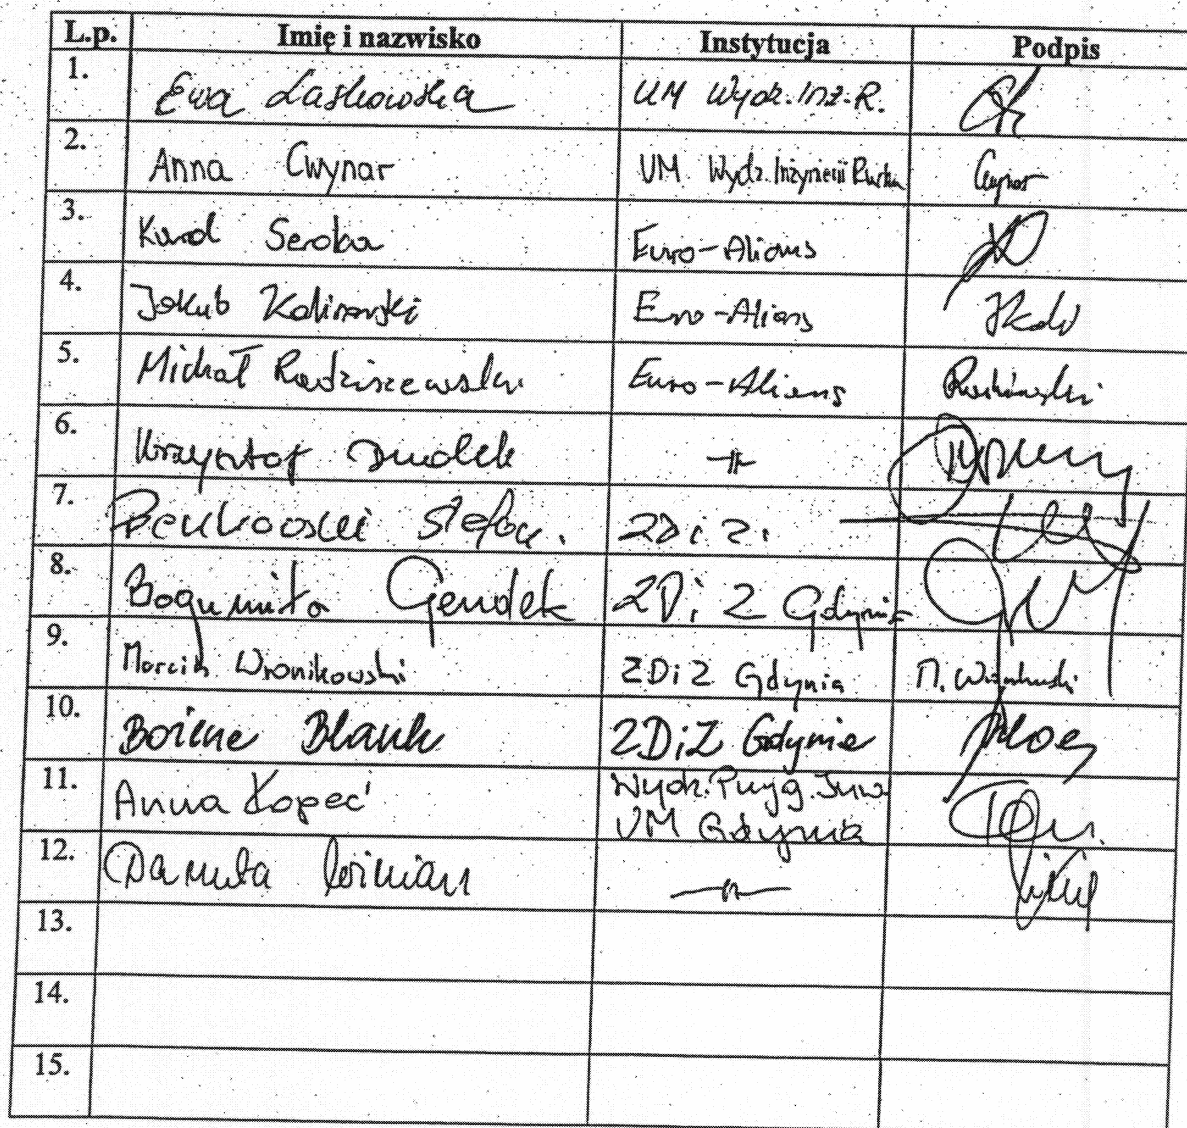 L.p. Imię i nazwisko Instytucja Podpis
1. Ewa Laskowska UM Wydz. Inż. R.
2. Anna Cwynar UM Wydz. Inżynierii Cwynar
3. Karol Seroka Euro-Alians
4. Jakub Kalinowski Euro-Alians
5. Michał Radziszewski Euro-Alians
6. Krzysztof Smolek -〃-
7. Penkowski Stefan. ZDiZ.
8. Bogumiła Gendek ZDiZ Gdynia
9. Marcin Wronikowski ZDiZ Gdynia M. Wronikowski
10. Bożena Blank ZDiZ Gdynia
11. Anna Kopeć Wydz. Przyg. Inw.
UM Gdynia
12. Danuta -〃-
13.
14.
15.